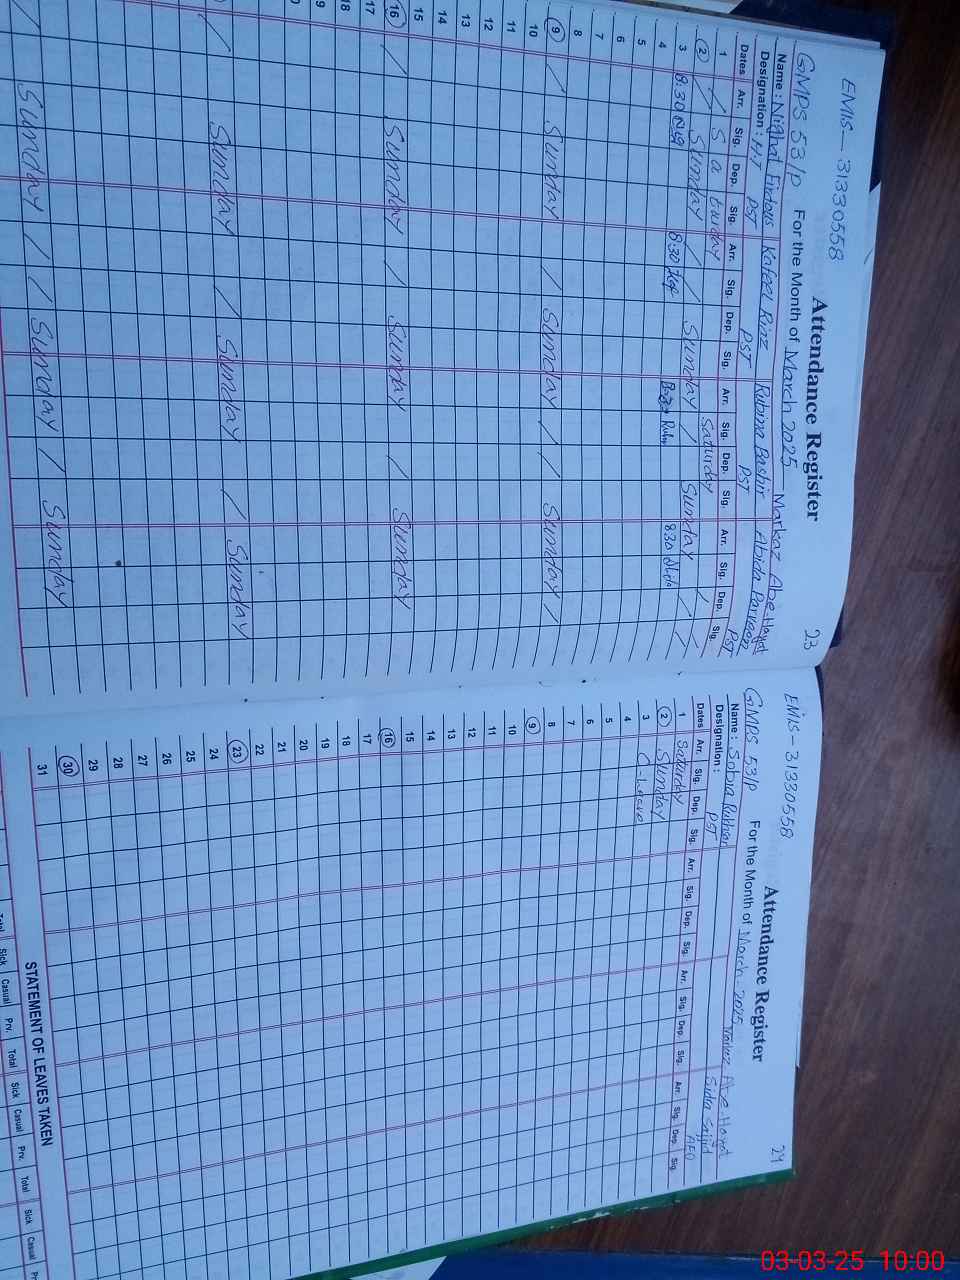 EMIS - 31330558
Attendance Register 23
GMPS 53/P For the Month of March 2025 Markaz Abe-Hayat
Name: Nighat Firdous Kafeel Riaz Rubina Bashir Abida Parveen
Designation: PST PST PST PST
Dates Arr. Sig. Dep. Sig. Arr. Sig. Dep. Sig. Arr. Sig. Dep. Sig. Arr. Sig. Dep. Sig.
1 Saturday Saturday
2 Sunday Sunday Sunday
3 8:30 8:30 830
4
5
6
7
8
9 Sunday Sunday Sunday
10
11
12
13
14
15
16 Sunday Sunday Sunday
17
18
Sunday Sunday Sunday
Sunday Sunday Sunday
EMIS - 31330558
Attendance Register 24
GMPS 53/P For the Month of March-2025 Markaz Abe Hayat
Name: Sobia Sidra Sajjid
Designation: PST AEO
Dates Arr. Sig. Dep. Sig. Arr. Sig. Dep. Sig. Arr. Sig. Dep. Sig. Arr. Sig. Dep. Sig.
1 Saturday
2 Sunday
3 C-Leave
4
5
6
7
8
9
10
11
12
13
14
15
16
17
18
19
20
21
22
23
24
25
26
27
28
29
30
31
STATEMENT OF LEAVES TAKEN
Total Sick Casual Prv. Total Sick Casual Prv. Total Sick Casual
03-03-25 10:00